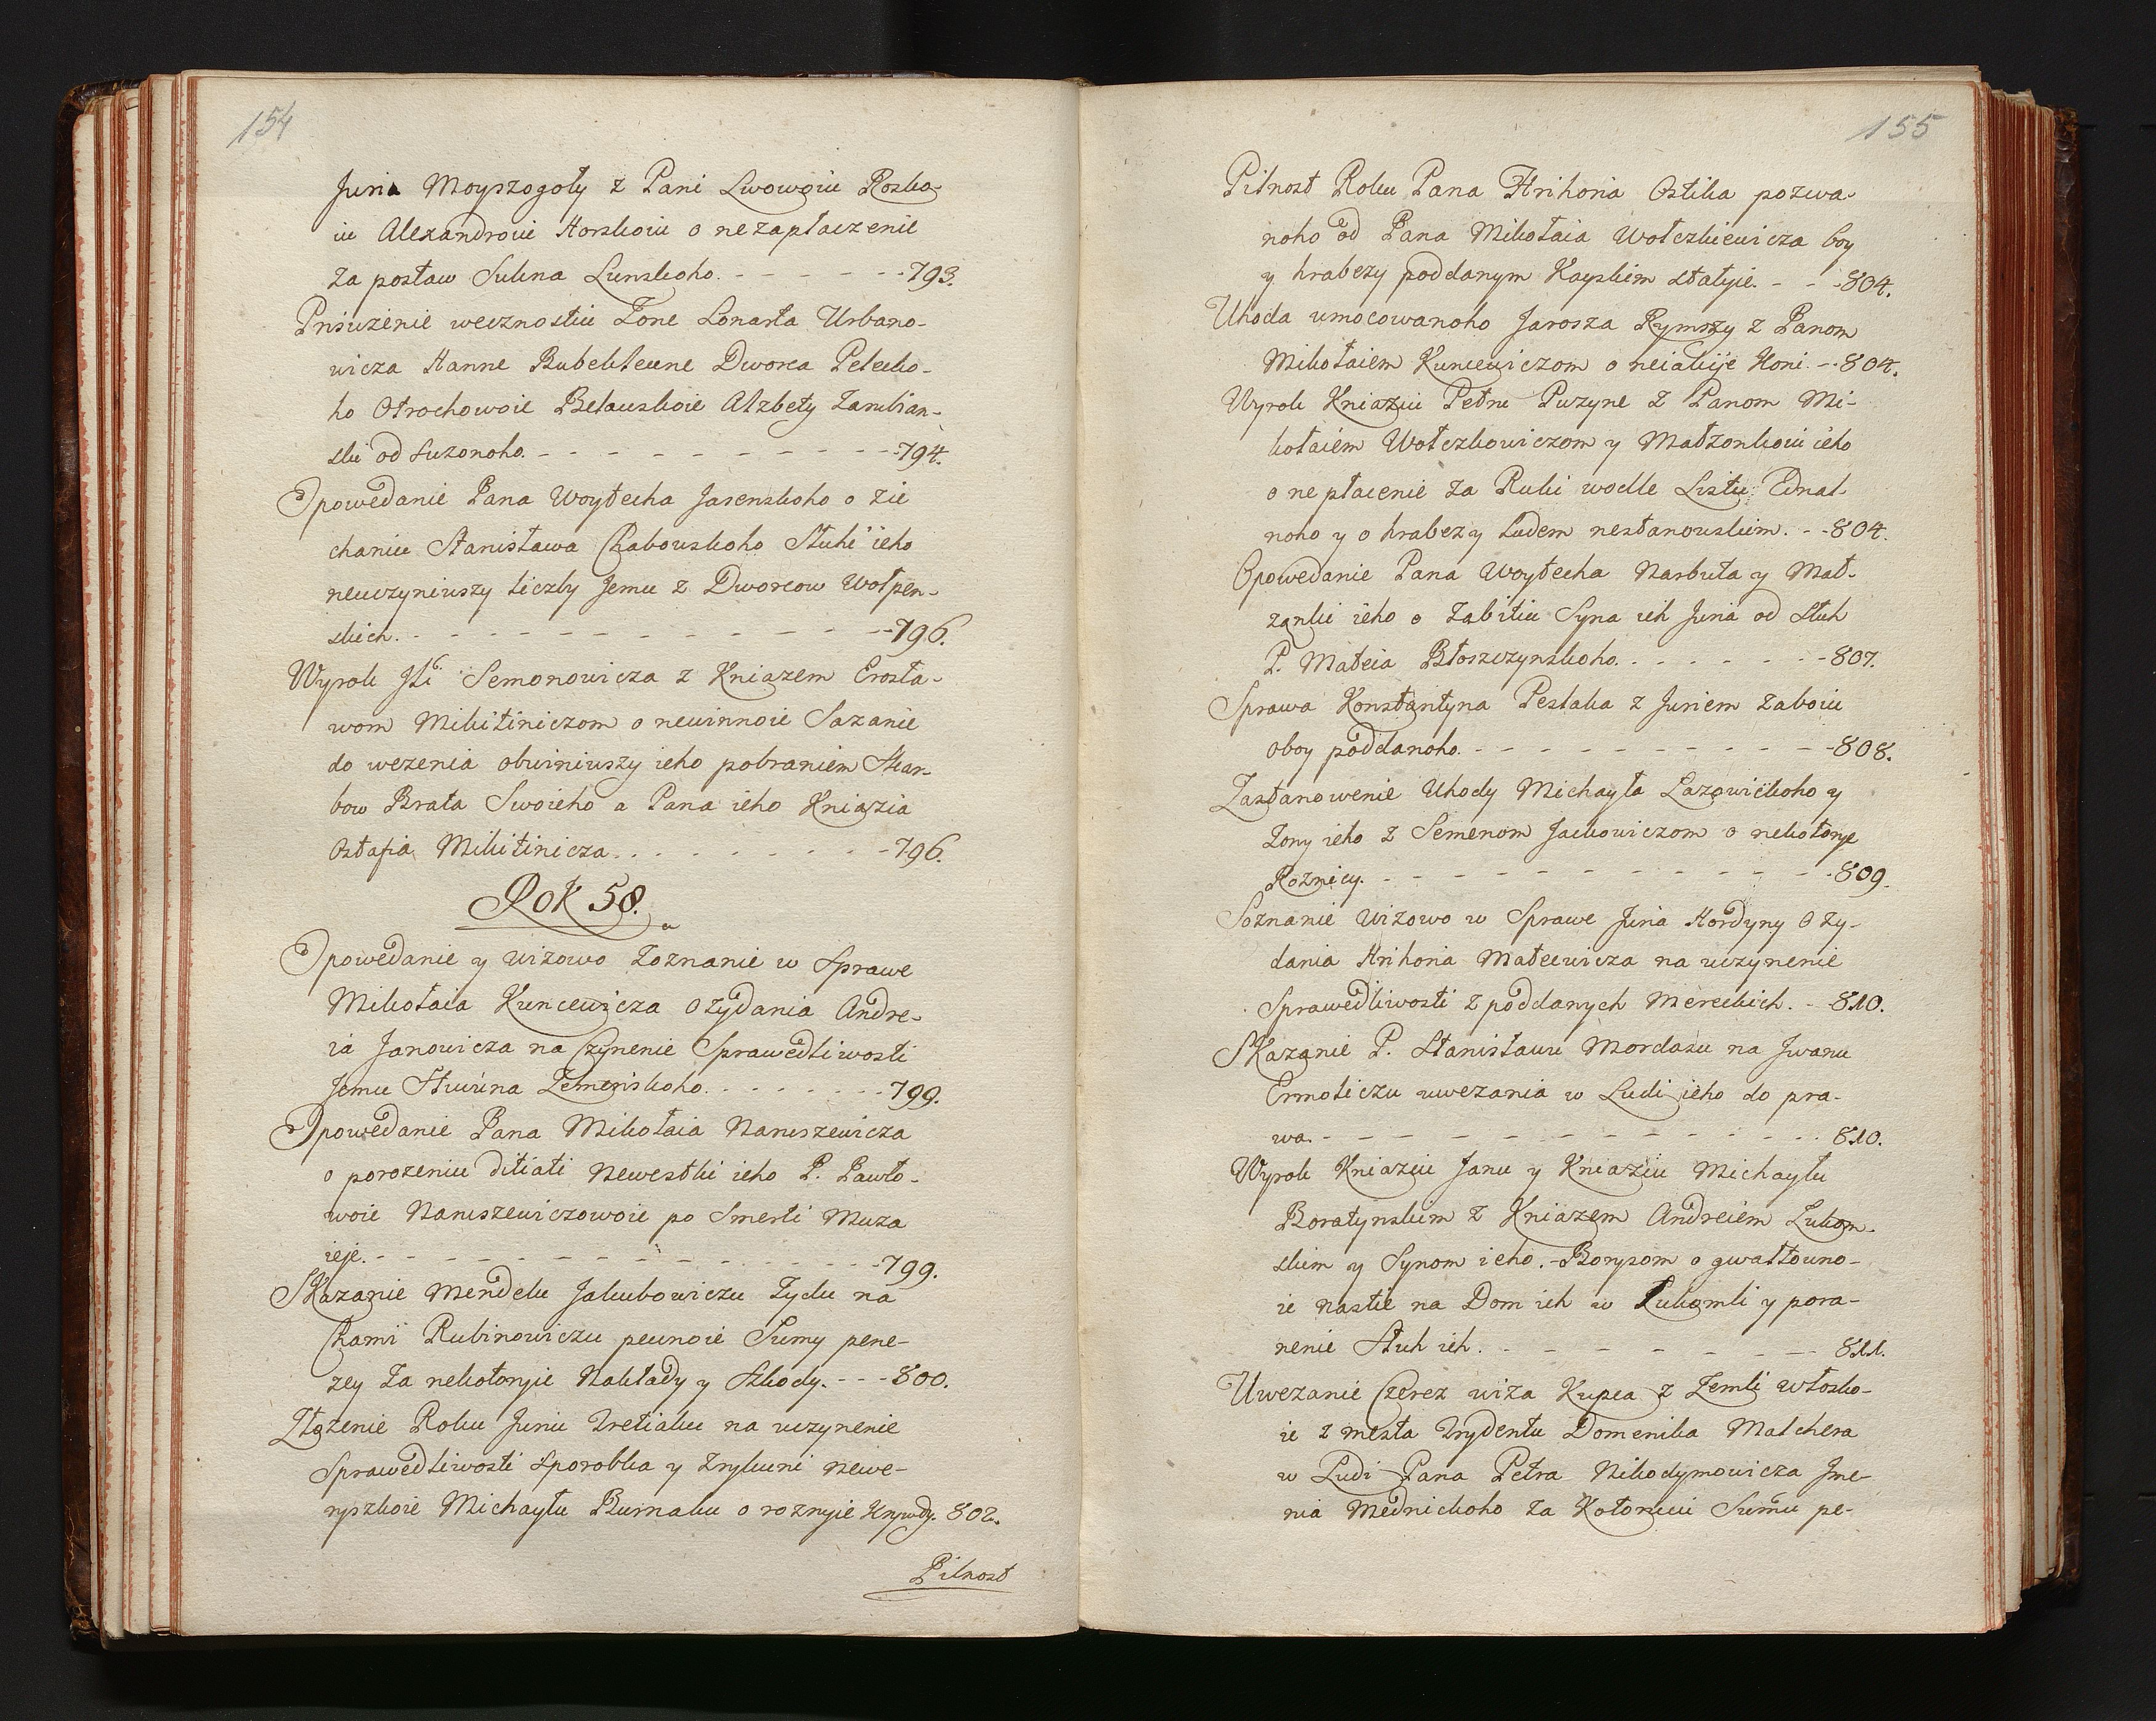 154
Juria Moyszogoły z Pani Lwowoiu Rosko-
iu Alexandroiu Horskoiu o nezapłaczenie
za postaw Sukna Lunskoho. 793.
Prisużenie wecznostiu Żone Lonarta Urbano-
wicza Hanne Bubekteune Dworca Petecho-
ho Otrochowoie Beławskoie Alzbety Zambian-
ski od suzonoho. 794.
Opowedanie Pana Woytecha Jasenskoho o zie
chaniu Stanisława Chabowskoho Słuhi ieho
neuczyniwszy liczby Jemu z Dworcow Wołpen-
skich. 796.
Wyrok Semonowicza z Kniazem Erosła-
wom Mikitiniczom o newinnoie Sazanie
do wezenia obwiniwszy ieho pobraniem Skar-
bow Brata Swoieho a Pana ieho Kniazia
Ostafia Mikitinicza. 796.
Rok 58.
Opowedanie y wizowo Zoznanie w Sprawe
Mikołaia Kuncewicza o żydania Andre-
ia Janowicza na Czynenie Sprawedliwosti
Jemu Stwina Żemenskoho. 799.
Opowedanie Pana Mikołaia Naruszewicza
o porozeniu ditiati Newestki ieho P. Pawło-
woie Naruszewiczowoie po Smerti Muza
ieje. 799.
Skazanie Mendelu Jakubowiczu Żydu na
Chami Rubinowiczu pewnoie Sumy pene-
zey Za nekotoryie Nakłady y Szkody. 800.
Złożenie Roku Juriu Tretiaku na uczynenie
Sprawedliwosti Sporobka y Trykuni Newe-
ryszkoie Michayłu Burnaku o roznyie Krywdy. 802.
Pilnost
155
Pilnost Roku Pana Hrihoria Ostika pozwa-
noho od Pana Mikołaia Wołczkiewicza boy
y hrabezy poddanym Kayskim stałyie. 804.
Uhoda umocowanoho Jarosza Rymszy z Panom
Mikołaiem Kuncewiczom o neiakije Koni. 804.
Wyrok Kniaziu Petru Puzyne z Panom Mi-
kołaiem Wołczkowiczom y Małzonkoiu ieho
o ne płacenie za Ruki wodle Listu Ednal-
noho y o hrabezy Ludem nestanowskim. 804.
Opowedanie Pana Woytecha Narbuta y Mał-
zonki ieho o Zabitiu Syna ich Juria od Słuh
P. Mateia Błoszczynskoho. 807.
Sprawa Konstantyna Pestaka z Juriem Zaboiu
o boy poddanoho. 808.
Zastanowenie Uhody Michayła Łazowickoho y
Żony ieho z Semenom Jackowiczom o nekotorye
Roznicy. 809.
Soznanie Wizowo w Sprawe Juria Hordyny o ży-
dania Hrihoria Mateewicza na uczynenie
Sprawedliwosti z poddanych Mereckich. 810.
Skazanie P. Stanisławu Mordasu na Jwanu
Ermoliczu uwezania w Ludi ieho do pra-
wa. 810.
Wyrok Kniaziu Janu y Kniaziu Michayłu
Boratynskim z Kniazem Andreiem Lukom-
skim y Synom ieho. Borysom o gwałtowno-
ie nastie na Dom ich w Lukomli y pora-
nenie Słuh ich. 811.
Uwezanie Czerez wiza Kupca z Zemli włosko-
ie z mesta Trydentu Domenika Malchera
w Ludi Pana Petra Nikodymowicza Jme-
nia Mednickoho za Kotoruiu Sumu pe-